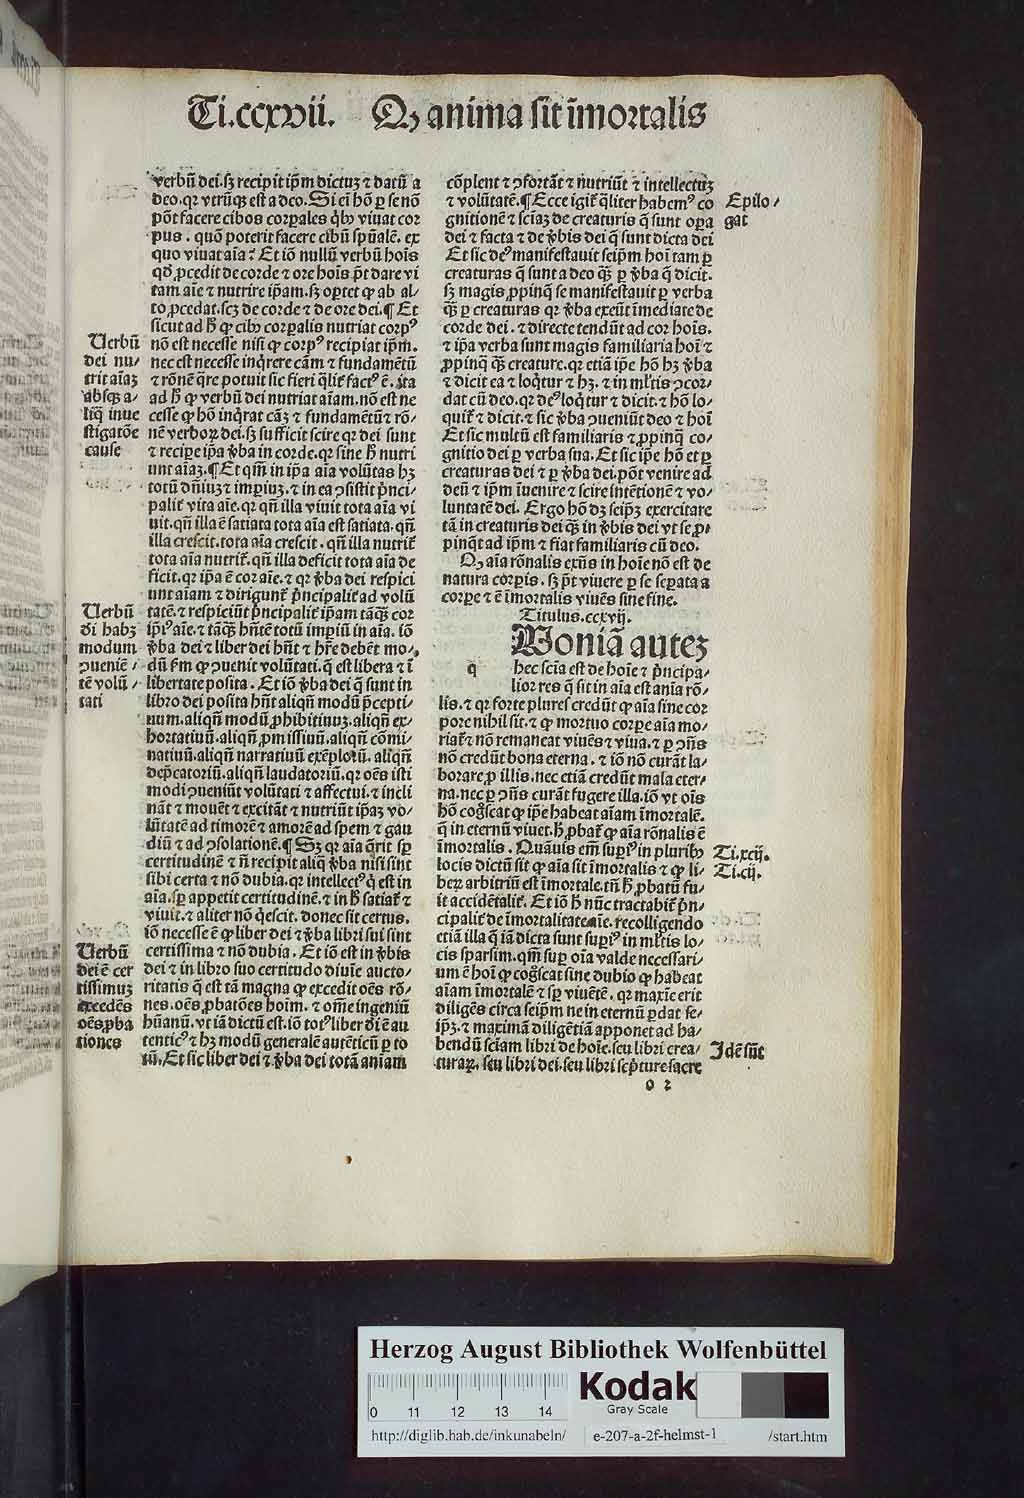 Ti.ccxvii. Qꝫ anima sit īmortalis
verbū dei.sꝫ recipit ip̄m dictuꝫ ⁊ datū a
deo.qr vtrūqꝫ est a deo. Si ei hō ꝑ se nō
pōt facere cibos corꝑales qͥbꝰ viuat cor
pus. quō poterit facere cibū spūalē. ex
quo viuat aīa? Et iō nullū verbū hoīs
qd̄ ꝓcedit de corde ⁊ ore hoīs pōt dare vi
tam aīe ⁊ nutrire ip̄am. sꝫ oꝑtet ꝙ ab al-
to ꝓcedat.scꝫ de corde ⁊ de ore dei.¶ Et
sicut ad h̄ ꝙ cibꝰ corꝑalis nutriat corpꝰ
nō est necesse nisi ꝙ corpꝰ recipiat ip̄m.
nec est necesse inqͥrere cām ⁊ fundamētū
⁊ rōnē qͣre potuit sic fieri qͣlitᷣ factꝰ ē. ita
ad h̄ ꝙ verbū dei nutriat aīam.nō est ne
cesse ꝙ hō inqͥrat cāꝫ ⁊ fundamētū ⁊ rō-
nē verboꝝ dei.sꝫ sufficit scire qr dei sunt
⁊ reciꝑe ip̄a v̄ba in corde.qr sine h̄ nutri
unt aīaꝫ.¶Et qm̄ in ip̄a aīa volūtas hꝫ
totū dn̄iuꝫ ⁊ imꝑiuꝫ.⁊ in ea ꝯsistit pͥnci-
palitᷣ vita aīe.qr qn̄ illa viuit tota aīa vi
uit.qn̄ illa ē satiata tota aīa est satiata.qn̄
illa crescit.tota aīa crescit. qn̄ illa nutritᷣ
tota aīa nutritᷣ. qn̄ illa deficit tota aīa de
ficit.qr ip̄a ē cor aīe.⁊ qr v̄ba dei respici
unt aīam ⁊ dirigunt᷑ pͥncipalitᷣ ad volū
tatē.⁊ respiciūt pͥncipalitᷣ ip̄am tāqͣꝫ cor
ip̄iꝰ aīe.⁊ tāqͣꝫ hn̄tē totū imꝑiū in aīa. iō
v̄ba dei ⁊ liber dei hn̄t ⁊ hr̄e debēt mo-
dū ẜm ꝙ ꝯuenit volūtati.q̄ est libera ⁊ ī
libertate posita. Et iō v̄ba dei q̄ sunt in
libro dei posita hn̄t aliqn̄ modū p̄cepti-
uum.aliqn̄ modū ꝓhibitiuuꝫ.aliqn̄ ex-
hortatiuū.aliqn̄ ꝓmissiuū.aliqn̄ cōmi-
natiuū.aliqn̄ narratiuū exēploꝝ. aliqn̄
dep̄catoriū.aliqn̄ laudatoriū.qr oēs isti
modi ꝯueniūt volūtati ⁊ affectui.⁊ incli
nāt ⁊ mouēt ⁊ excitāt ⁊ nutriūt ip̄aꝫ vo-
lūtatē ad timorē ⁊ amorē ad spem ⁊ gau
diū ⁊ ad ꝯsolationē.¶ Sꝫ qr aīa qͥrit sꝑ
certitudinē ⁊ n̄ recipit aliq̄ v̄ba nisi sint
sibi certa ⁊ nō dubia.qr intellectꝰ qͥ est in
aīa.sꝑ appetit certitudinē.⁊ in h̄ satiatᷣ ⁊
viuit.⁊ aliter nō qͥescit. donec sit certus.
iō necesse ē ꝙ liber dei ⁊ v̄ba libri sui sint
certissima ⁊ nō dubia. Et iō est in v̄bis
dei ⁊ in libro suo certitudo diuīe aucto-
ritatis q̄ est tā magna ꝙ excedit oēs rō-
nes.oēs ꝓbatōes hoīm. ⁊ om̄e ingeniū
hūanū. vt iā dictū est.iō totꝰ liber dei ē au
tenticꝰ ⁊ hꝫ modū generalē autēticū ꝑ to
tū. Et sic liber dei ⁊ v̄ba dei totā aniam
Uerbū
dei nu-
trit aīaꝫ
absqꝫ a-
liq̄ inue
stigatōe
cause
Uerbū
di habꝫ
modum
ꝯueniē-
tē volū-
tati
Uerbū
dei ē cer
tissimuꝫ
excedēs
oēs ꝓba
tiones
cōplent ⁊ ꝯfortāt ⁊ nutriūt ⁊ intellectuꝫ
⁊ volūtatē.¶Ecce igitᷣ qͣliter habemꝰ co
gnitionē ⁊ sciaꝫ de creaturis q̄ sunt oꝑa
dei ⁊ facta ⁊ de v̄bis dei q̄ sunt dicta dei
Et sic deꝰ manifestauit seip̄m hoī tam ꝑ
creaturas q̄ sunt a deo qͣꝫ ꝑ v̄ba q̄ dicit.
sꝫ magis ꝓpinqͣ se manifestauit ꝑ verba
qͣꝫ ꝑ creaturas qr v̄ba exeūt īmediate de
corde dei. ⁊ directe tendūt ad cor hoīs.
⁊ ip̄a verba sunt magis familiaria hoī ⁊
ꝓpinqͣ qͣꝫ creature.qr etiā ip̄e hō hꝫ v̄ba
⁊ dicit ea ⁊ loqͥtur ⁊ hꝫ. ⁊ in mltis ꝯcor-
dat cū deo. qr deꝰ loqͥtur ⁊ dicit.⁊ hō lo-
quitᷣ ⁊ dicit.⁊ sic v̄ba ꝯueniūt deo ⁊ hoī
Et sic multū est familiaris ⁊ ꝓpinqͣ co-
gnitio dei ꝑ verba sua. Et sic ip̄e hō et ꝑ
creaturas dei ⁊ ꝑ v̄ba dei.pōt venire ad
deū ⁊ ip̄m īuenire ⁊ scire intētionē ⁊ vo-
luntatē dei. Ergo hō dꝫ seip̄ꝫ exercitare
tā in creaturis dei qͣꝫ in v̄bis dei vt se ꝓ-
pinqͣt ad ip̄m ⁊ fiat familiaris cū deo.
Qꝫ aīa rōnalis exn̄s in hoīe nō est de
natura corꝑis. sꝫ pōt viuere ꝑ se seꝑata a
corꝑe ⁊ ē īmortalis viuēs sine fine.
Titulus.ccxvij.
q Uoniā auteꝫ
hec scīa est de hoīe ⁊ pͥncipa-
lior res q̄ sit in aīa est anīa rō-
lis.⁊ qr forte plures credūt ꝙ aīa sine cor
pore nihil sit.⁊ ꝙ mortuo corꝑe aīa mo-
riatᷣ ⁊ nō remaneat viuēs ⁊ viua.⁊ ꝑ ꝯn̄s
nō credūt bona eterna. ⁊ iō nō curāt la-
borare ꝓ illis. nec etiā credūt mala eter-
na.nec ꝑ ꝯn̄s curāt fugere illa.iō vt oīs
hō cogͦscat ꝙ ip̄e habeat aīam īmortalē.
q̄ in eternū viuet.h̄ ꝓbatᷣ ꝙ aīa rōnalis ē
īmortalis. Quāuis em̄ supͥꝰ in pluribꝰ
locis dictū sit ꝙ aīa sit īmortalis ⁊ ꝙ li-
beꝝ arbitriū est īmortale.tn̄ h̄ ꝓbatū fu-
it accidētalitᷣ. Et iō h̄ nūc tractabitᷣ pͥn-
cipalitᷣ de īmortalitate aīe.recolligendo
etiā illa q̄ iā dicta sunt supͥꝰ in mltis lo-
cis sparsim.qm̄ suꝑ oīa valde necessari-
um ē hoī ꝙ cogͦscat sine dubio ꝙ habeat
aīam īmortalē ⁊ sꝑ viuētē. qr maxīe erit
diligēs circa seip̄m ne in eternū ꝑdat se-
ip̄ꝫ.⁊ maximā diligētiā apponet ad ha-
bendū sciam libri de hoīe.seu libri crea-
turaꝝ. seu libri dei.seu libri scp̄ture sacre
Epilo-
gat
Ti.xcij.
Ti.cij.
Idē sūt
o 2
Herzog August Bibliothek Wolfenbüttel
Kodak
Gray Scale
0 11 12 13 14
http://diglib.hab.de/inkunabeln/ e-207-a-2f-helmst-1 /start.htm